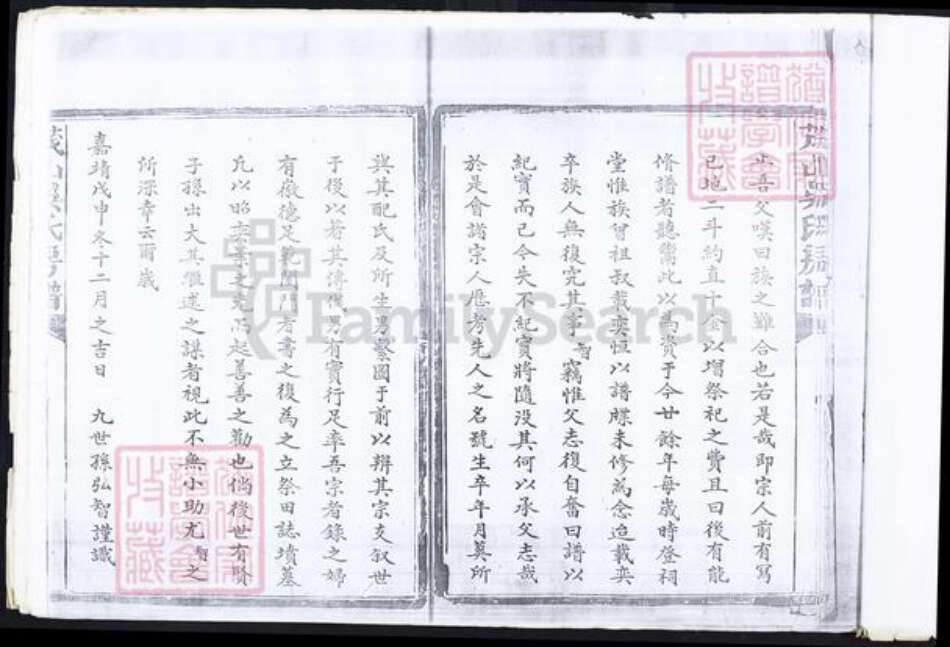 吾父嘆曰族之難合也若是哉即宗人前有寫
已地二斗約直十金以增祭祀之費且曰後有能
修譜者聽鬻此以為資于今廿餘年每歲時登祠
堂惟族曾祖叔載奕恒以譜牒未修為念迨載奕
卒族人無復究其事智竊惟父志復自奮曰譜以
紀實而已今失不紀實將隨没其何以承父志哉
於是會諸宗人歷考先人之名號生卒年月葬所
與其配氏及所生男繫圖于前以辨其宗支叙世
于後以著其傳代男有實行足率吾宗者錄之婦
有徽德足範閨門者書之復為之立祭田誌墳墓
凡以昭之起善善之勸也倘後世有賢
子孫出大其繼述之謀者視此不無小助尤智之
所深幸云爾歲
嘉靖戊申冬十二月之吉日 九世孫弘智謹識
氏譜
FamilySearch
譜學會
收藏
譜學會
收藏